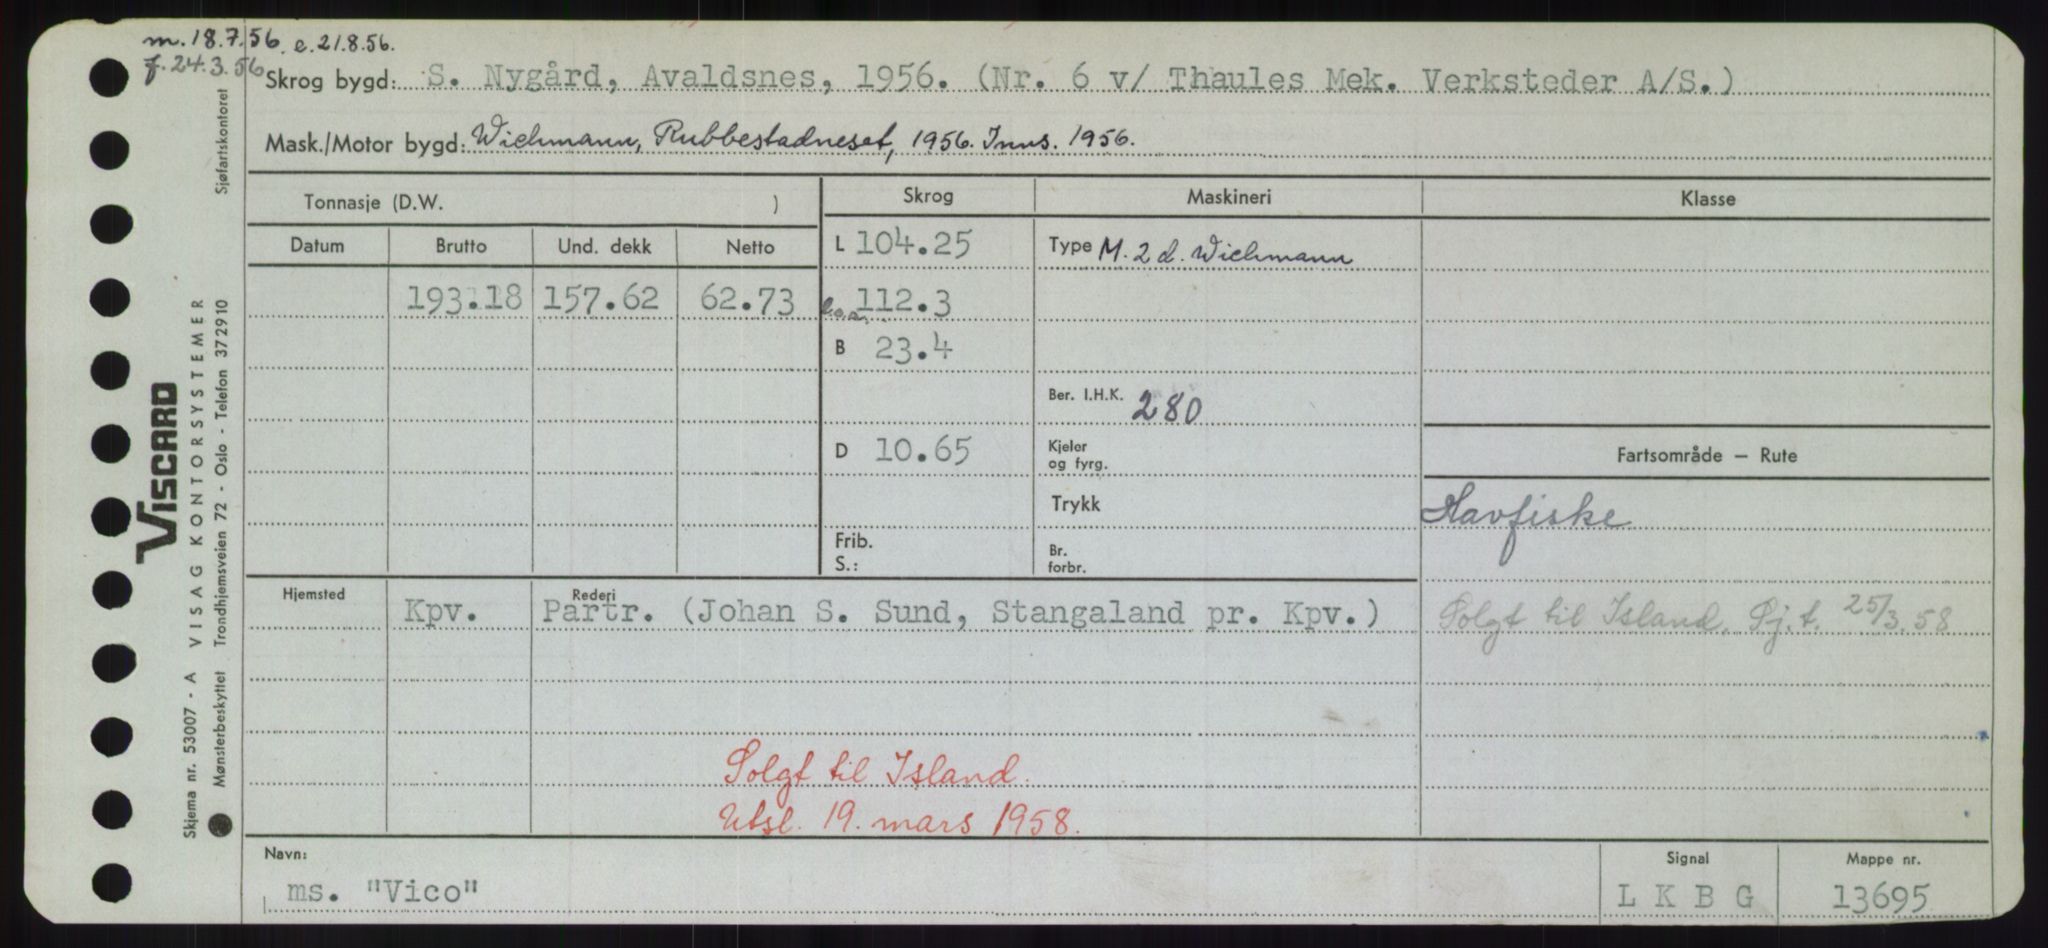 m. 18.7.56. e. 21.8.56.
f. 24.3.56
Skrog bygd: S. Nygård, Avaldsnes, 1956. (Nr. 6 v/ Thaules Mek. Verksteder A/S.)
Mask./Motor bygd: Wichmann, Rubbestadneset, 1956. Inns. 1956.
Tonnasje (D.W. )
Skrog
Maskineri
Klasse
Datum Brutto Und. dekk Netto
L 104.25
Type M. 2 d. Wichmann
193.18 157.62 62.73
l.o.a. 112.3
B 23.4
Ber. I.H.K. 280
D 10.65
Kjeler
og fyrg.
Fartsområde — Rute
Trykk
Havfiske
Frib.
S.:
Br.
forbr.
Hjemsted
Rederi
Kpv. Partr. (Johan S. Sund, Stangaland pr. Kpv.)
Solgt til Island. Sj.t. 25/3.58
Solgt til Island.
Utsl. 19. mars 1958.
Navn:
ms. "Vico"
Signal
L K B G
Mappe nr.
13695
VISCARD
Skjema nr. 53007 - A VISAG KONTORSYSTEMER
Mønsterbeskyttet Trondhjemsveien 72 - Oslo - Telefon 372910 Sjøfartskontoret